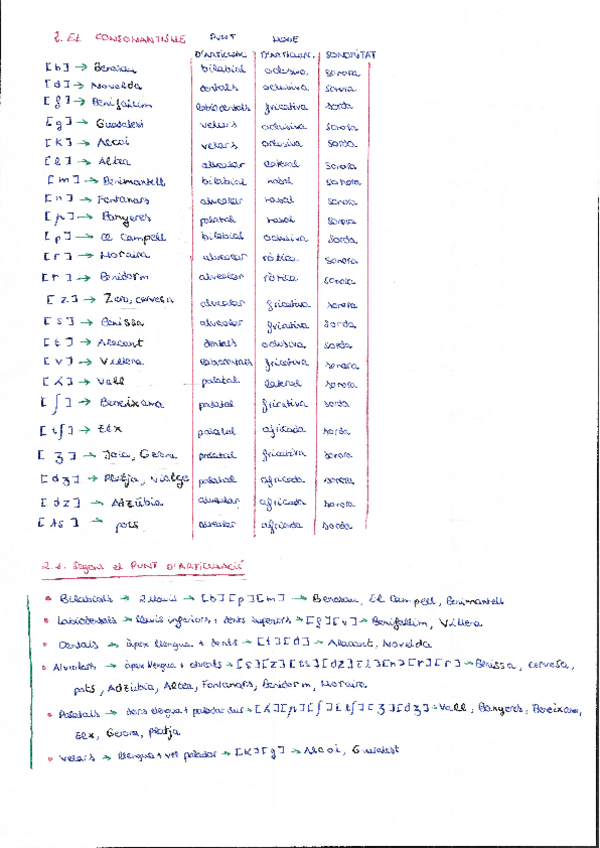 2. EL CONSONANTISME PUNT MODE
D'ARTICULAC. D'ARTICULAC. SONORITAT
[b] → Beneixau bilabial oclusiva sonora
[d] → Novelda dentals oclusiva sonora
[f] → Benifallim labiodentals fricativa sorda
[g] → Guadalest velars oclusiva sonora
[k] → Alcoi velars oclusiva sorda
[l] → Altea alveolar lateral sonora
[m] → Benimantell bilabial nasal sonora
[n] → Fontanars alveolar nasal sonora
[ɲ] → Banyeres palatal nasal sonora
[p] → el Campell bilabial oclusiva sorda
[r] → Moraira alveolar ròtica sonora
[r] → Benidorm alveolar ròtica sonora
[z] → Zero, cervesa alveolar fricativa sonora
[s] → Benissa alveolar fricativa sorda
[t] → Alacant dentals oclusiva sorda
[v] → Villena labiodentals fricativa sonora
[ʎ] → Vall palatal lateral sonora
[ʃ] → Beneixama palatal fricativa sorda
[tʃ] → Elx palatal africada sorda
[ʒ] → Joia, Gerra palatal fricativa sonora
[dʒ] → Platja, viatge palatal africada sonora
[dz] → Adzúbia alveolar africada sonora
[ts] → pots alveolar africada sorda
2.1. Segons el PUNT D'ARTICULACIÓ
• Bilabials → 2 llavis → [b][p][m] → El Campell, Benimantell
• Labiodentals → llavis inferiors + dents superiors → [f][v] → Benifallim, Villena
• Dentals → àpex llengua + dents → [t][d] → Alacant, Novelda
• Alveolars → àpex llengua + alveols → [s][z][ts][dz][l][n][r][r] → Benissa, cervesa,
pots, Adzúbia, Altea, Fontanars, Benidorm, Moraira
• Palatals → dors llengua + paladar dur → [ʎ][ɲ][ʃ][tʃ][ʒ][dʒ] → Vall, Banyeres, Beneixama,
Elx, Gerra, Platja
• Velars → llengua + vel paladar → [k][g] → Alcoi, Guadalest